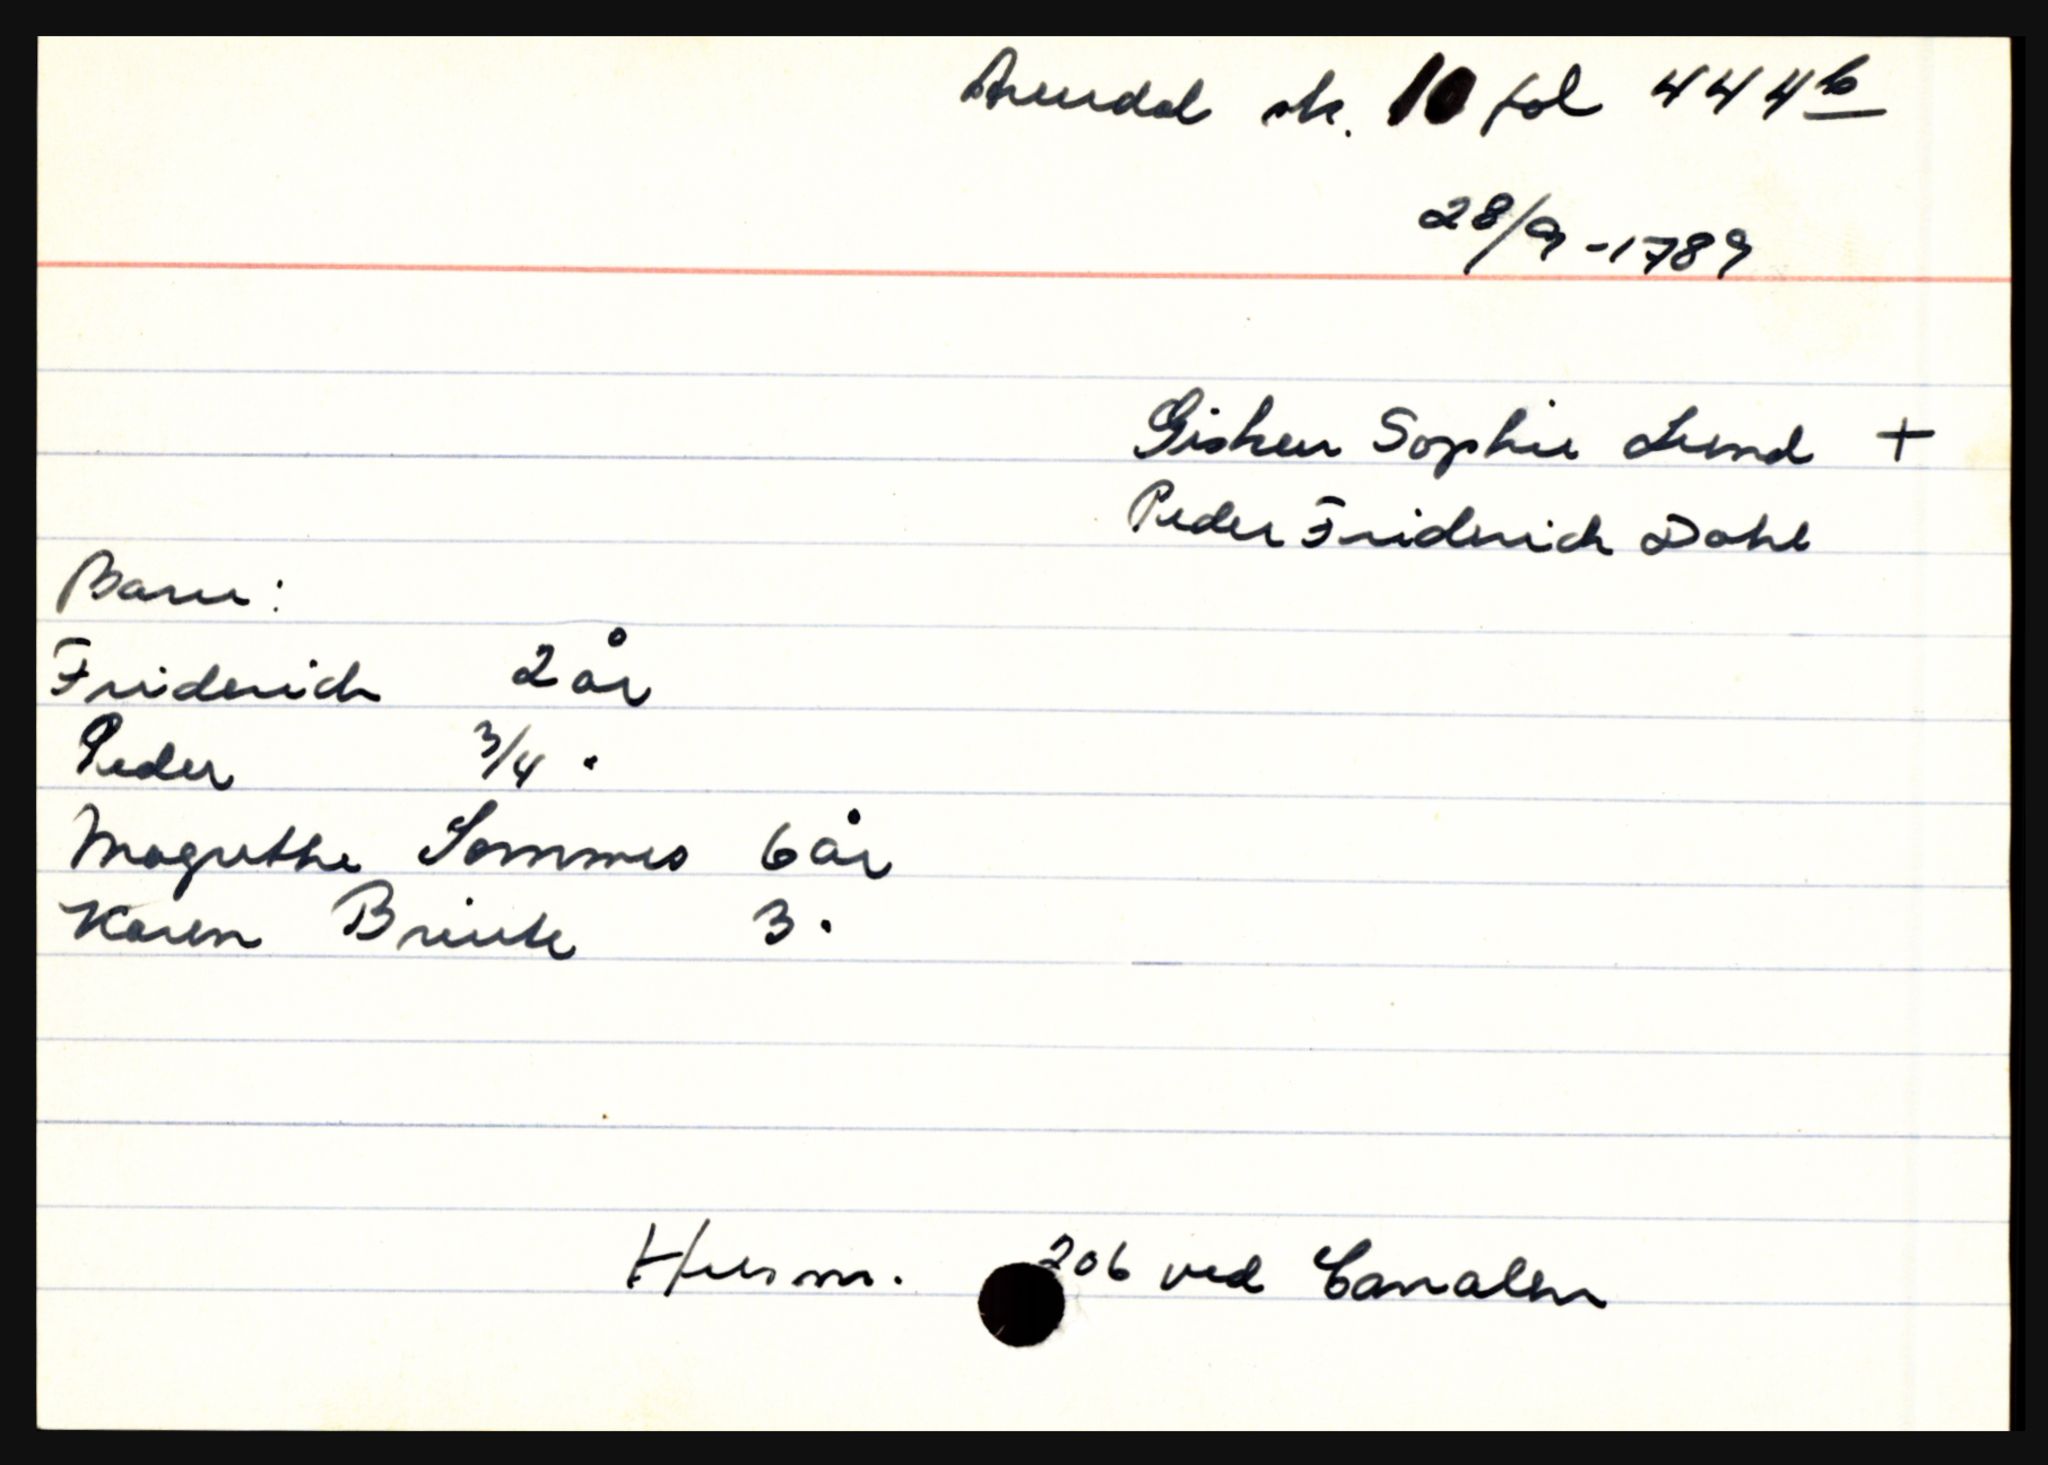 Arendal sk. 10 fol 444b
28/9-1789
Gisken Sophie Lund +
Peder Friderich Dahl
Barn:
Friderich 2 år
Peder 3/4 "
Magrethe 6 år
Karen Birite 3 "
Husnr. 206 ved Canalen